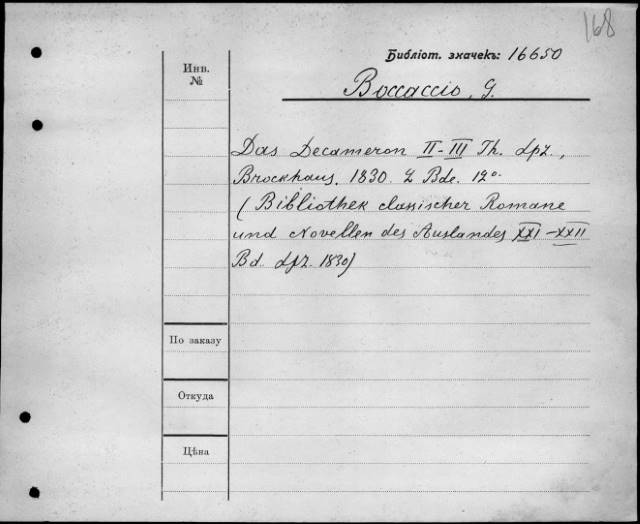 168
Библіот. значекъ: 16650
Инв.
№
Boccaccio, G.
Das Decameron II-III Th. Lpz.,
Brockhaus, 1830. 2 Bde. 12°.
(Bibliothek classischer Romane
und Novellen des Auslandes XXI-XXII
Bd. Lpz. 1830)
По заказу
Откуда
Цѣна